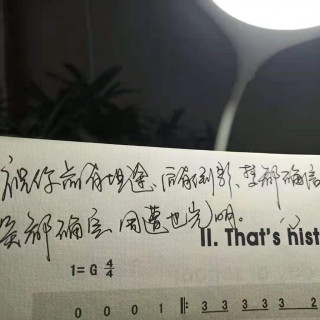 祝你前有坦途、后有倒影、梦都确信
爱都确定、周遭也光明。
II. That's hist
1=G 4/4
0 0 0 1 ‖: 3 3 3 3 3 2